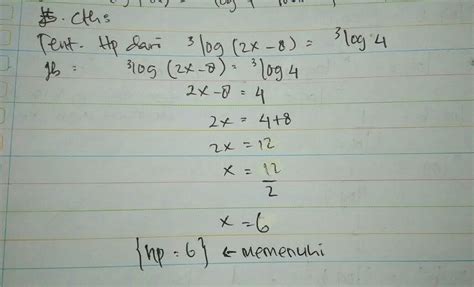 Cths
Tent. Hp dari ³log (2x-8) = ³log 4
jb : ³log (2x-8) = ³log 4
2x-8 = 4
2x = 4+8
2x = 12
x = 12/2
x = 6
{hp = 6} ← memenuhi